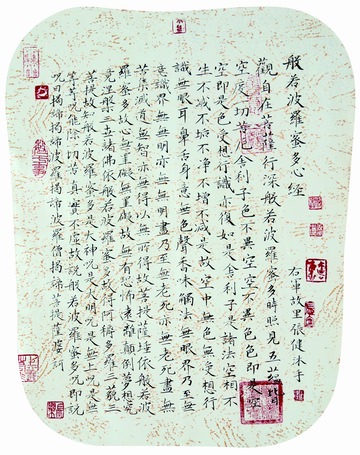 般若波羅蜜多心經
觀自在菩薩行深般若波羅蜜多時照見五蘊皆
空度一切苦厄舍利子色不異空空不異色色即是空
空即是色受想行識亦復如是舍利子是諸法空相不
生不滅不垢不淨不增不減是故空中無色無受想行
識無眼耳鼻舌身意無色聲香味觸法無眼界乃至無
意識界無無明亦無無明盡乃至無老死亦無老死盡無
苦集滅道無智亦無得以無所得故菩提薩埵依般若波
羅蜜多故心無罣礙無罣礙故無有恐怖遠離顛倒夢想究
竟涅槃三世諸佛依般若波羅蜜多故得阿耨多羅三藐三
菩提故知般若波羅蜜多是大神咒是大明咒是無上咒是無
等等咒能除一切苦真實不虛故說般若波羅蜜多咒即說
咒曰揭諦揭諦波羅揭諦波羅僧揭諦菩提薩婆訶
右軍故里張健沐手